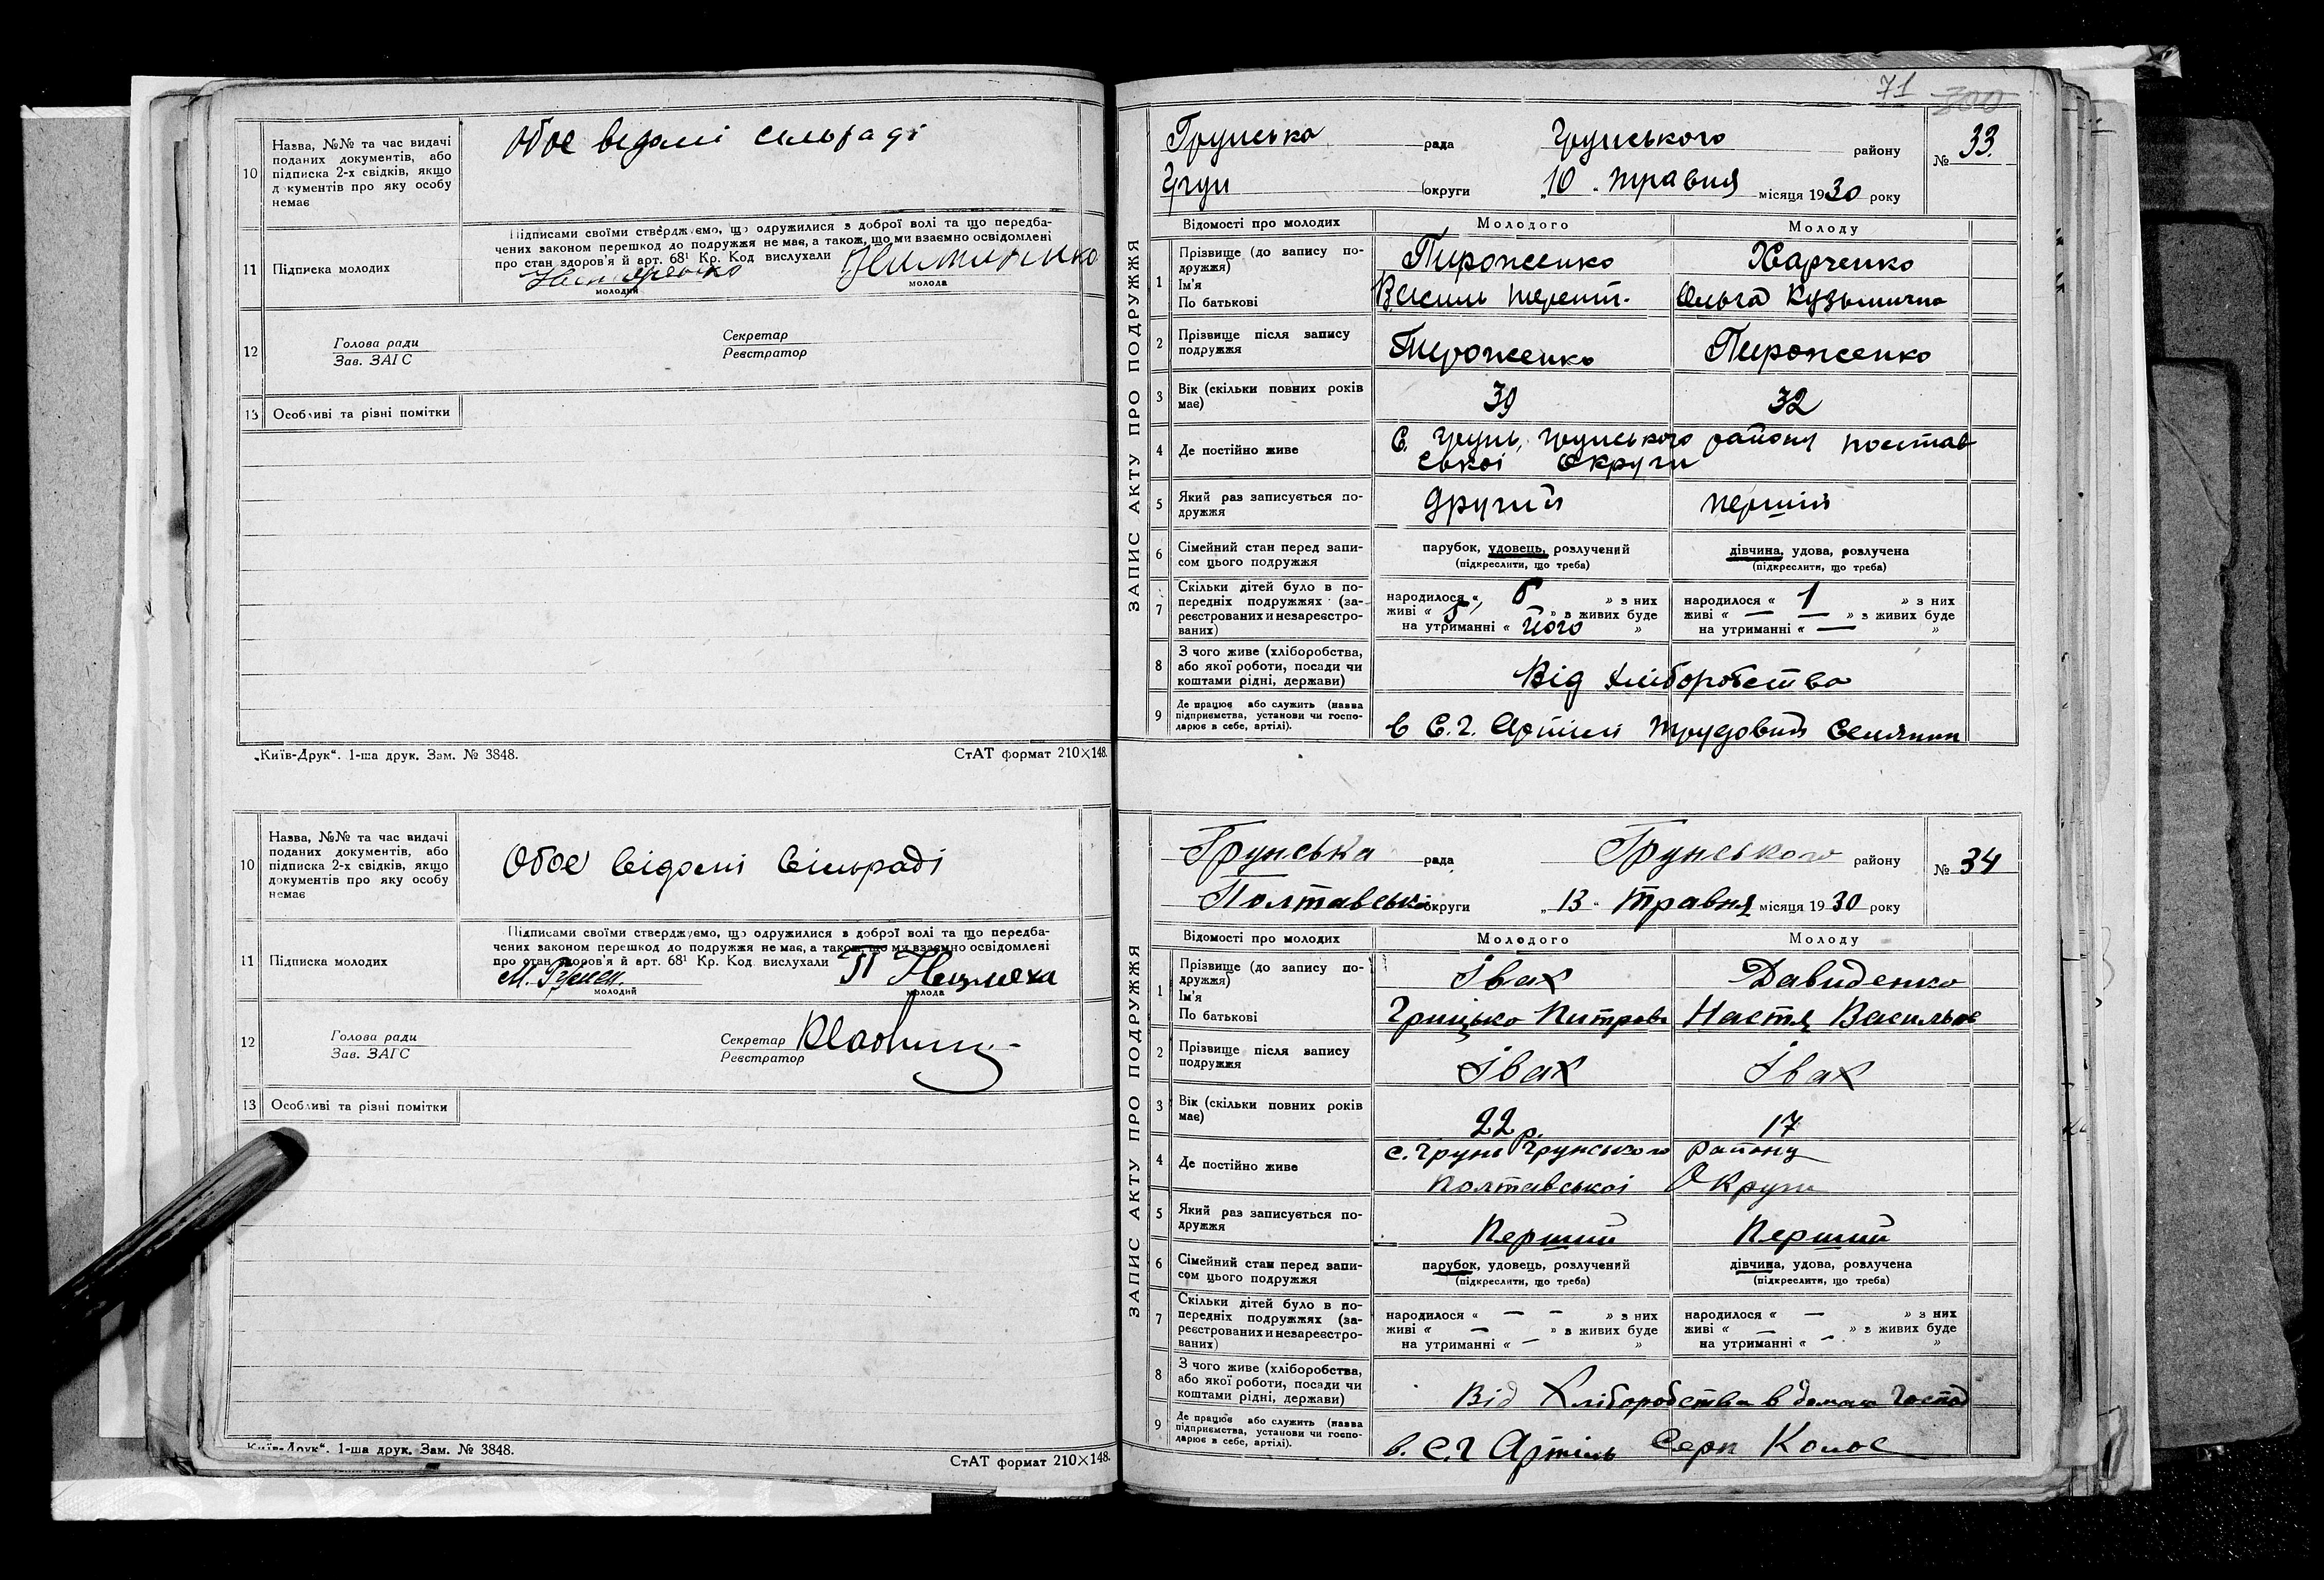 10
Назва, №№ та час видачі
поданих документів, або
підписка 2-х свідків, якщо
д кументів про яку особу
немає
Обоє ведомі сельраді
11
Підписка молодих
Підписами своїми стверджуємо, що одружилися з доброї волі та що передба-
чених законом перешкод до подружжя не має, а також, що ми взаємно освідомлені
про стан здоров'я й арт. 68¹ Кр. Код вислухали
молодий
молода
12
Голова ради
Зав. ЗАГС
Секретар
Реєстратор
13
Особливі та різні помітки
„Київ-Друк“. 1-ша друк. Зам. № 3848.
СтАТ формат 210×148.
10
Назва, №№ та час видачі
поданих документів, або
підписка 2-х свідків, якщо
документів про яку особу
немає
Обоє відомі Сільраді
11
Підписка молодих
Підписами своїми стверджуємо, що одружилися з доброї волі та що передба-
чених законом перешкод до подружжя не має, а також, що ми взаємно освідомлені
про стан здоров'я й арт. 68¹ Кр. Код вислухали
молодий
молода
12
Голова ради
Зав. ЗАГС
Секретар
Реєстратор
13
Особливі та різні помітки
„Київ-Друк“. 1-ша друк. Зам. № 3848.
СтАТ формат 210×148.
71 300
Грунська рада Грунського району
№ 33
округи „10“ травня місяця 1930 року
ЗАПИС АКТУ ПРО ПОДРУЖЖЯ
Відомості про молодих
Молодого
Молоду
1
Прізвище (до запису по-
дружжя)
Ім'я
По батькові
Пироженко
Василь Терент.
Харченко
Ольга Кузьмична
2
Прізвище після запису
подружжя
Пироженко
Пироженко
3
Вік (скільки повних років
має)
39
32
4
Де постійно живе
С. Грунь, Грунського району Полтав
ської Округи
5
Який раз записується по-
дружжя
другий
перший
6
Сімейний стан перед запи-
сом цього подружжя
парубок, удовець, розлучений
(підкреслити, що треба)
дівчина, удова, розлучена
(підкреслити, що треба)
7
Скільки дітей було в по-
передніх подружжях (за-
реєстрованих и незареєстро-
ваних)
народилося « » з них
живі « » з живих буде
на утриманні « його »
народилося « 1 » з них
живі « — — » з живих буде
на утриманні « — »
8
З чого живе (хліборобства,
або якої роботи, посади чи
коштами рідні, держави)
Від хліборобства
9
Де працює або служить (назва
підприємства, установи чи госпо-
дарює в себе, артілі).
в С.Г. Артілі Трудовий Селянин
Грунська рада Грунського району
№ 34
Полтавської округи „13“ Травня місяця 1930 року
ЗАПИС АКТУ ПРО ПОДРУЖЖЯ
Відомості про молодих
Молодого
Молоду
1
Прізвище (до запису по-
дружжя)
Ім'я
По батькові
Івах
Грицько Питров
Давиденко
Настя Василів
2
Прізвище після запису
подружжя
Івах
Івах
3
Вік (скільки повних років
має)
22 р.
17
4
Де постійно живе
с. Грунь Грунського району
Полтавської Округи
5
Який раз записується по-
дружжя
Перший
Перший
6
Сімейний стан перед запи-
сом цього подружжя
парубок, удовець, розлучений
(підкреслити, що треба)
дівчина, удова, розлучена
(підкреслити, що треба)
7
Скільки дітей було в по-
передніх подружжях (за-
реєстрованих и незареєстро-
ваних)
народилося « — — » з них
живі « — » з живих буде
на утриманні « — »
народилося « — » з них
живі « — » з живих буде
на утриманні « — »
8
З чого живе (хліборобства,
або якої роботи, посади чи
коштами рідні, держави)
Від Хліборобства в
9
Де працює або служить (назва
підприємства, установи чи госпо-
дарює в себе, артілі).
в. С.Г Артіль Серп Колос